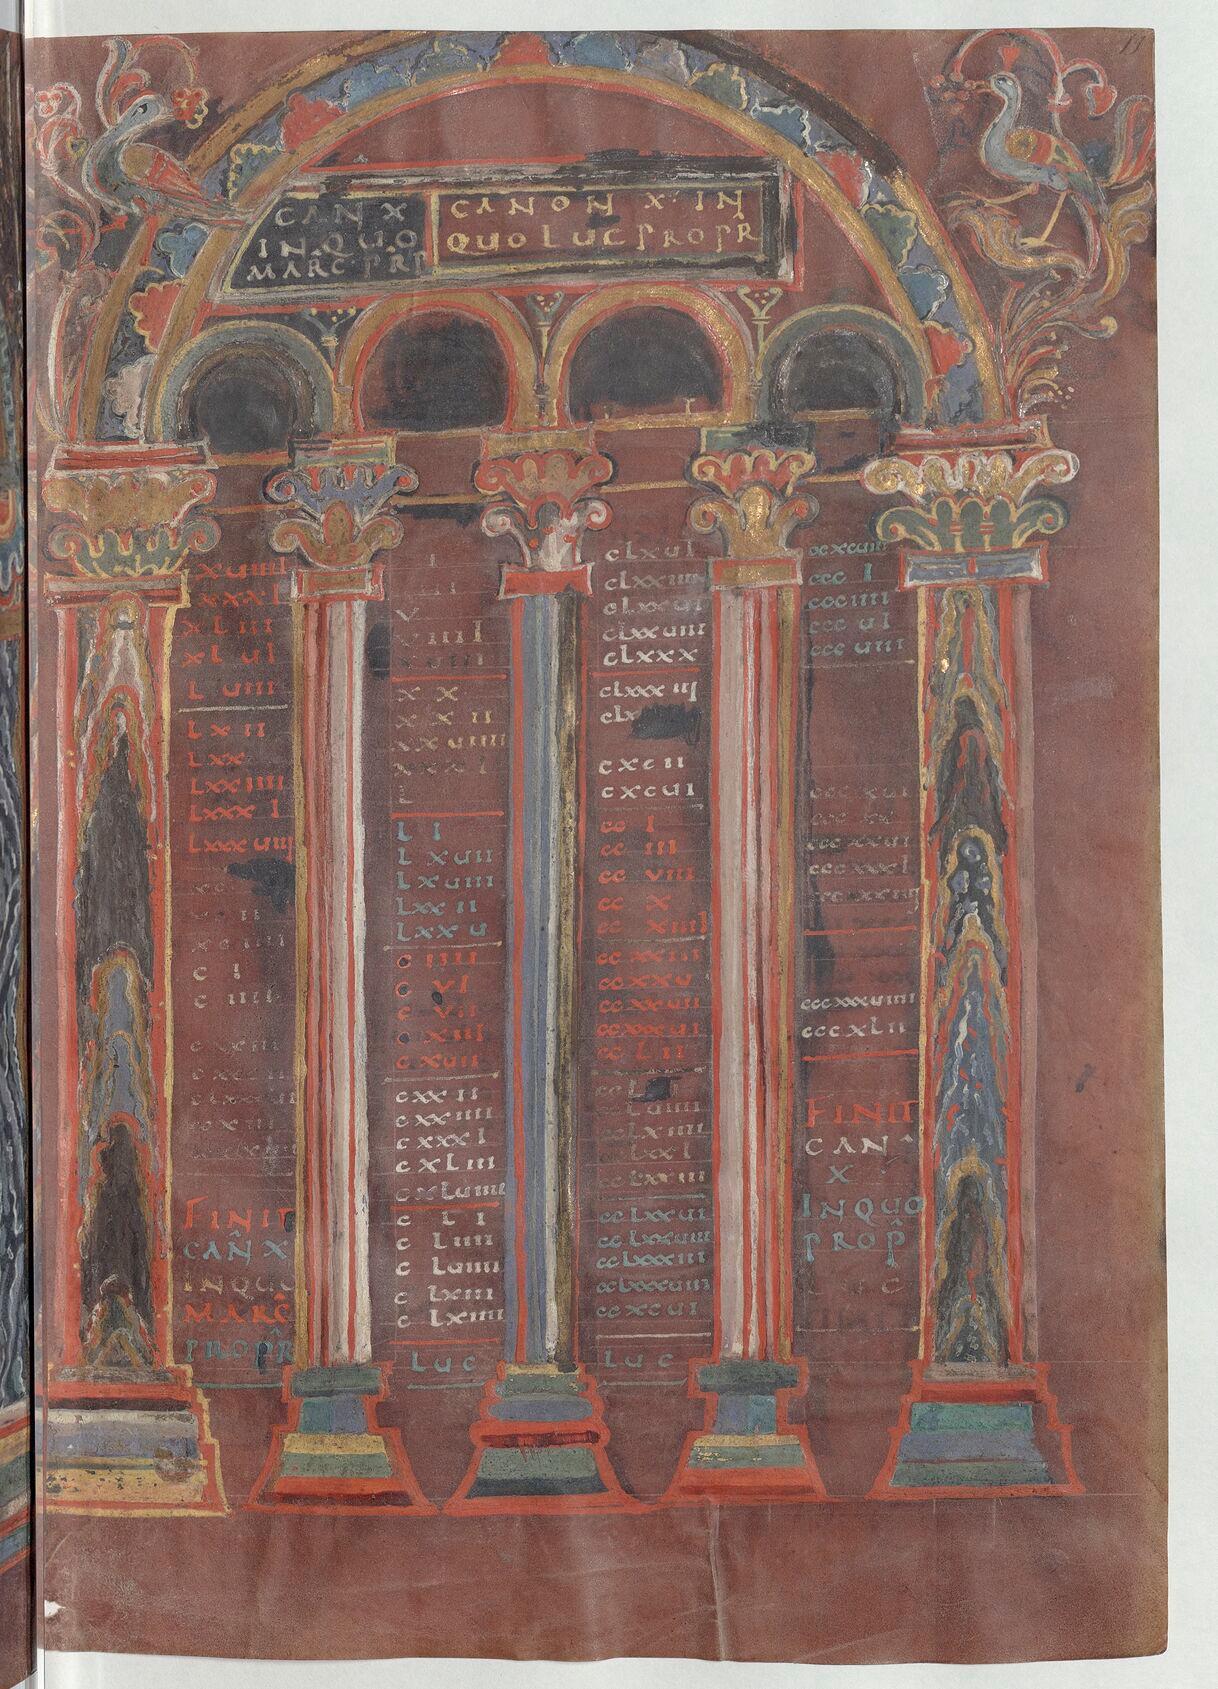 CAN X
IN QUO
MARC PRP
CANON X IN
QUO LUC PROPR
XUIIII
XXXI
XLIII
XLUI
LUIII
LXII
LXX
LXXIIII
LXXXI
LXXXUIIII
C I
C IIII
FINIT
CAN X
IN QUO
MARC
PROPR
V
VIIII
XUIII
XX
XXII
XXUIIII
XXXI
L
LI
LXUII
LXUIII
LXXII
LXXU
C IIII
C VI
C VII
C XIII
C XUII
CXXII
CXXIIII
CXXXI
CXLIII
CXLUIIII
C LI
C LIIII
C LUIIII
C LXIII
C LXIIII
LUC
CLXUI
CLXXIIII
CLXXUI
CLXXUIII
CLXXX
CLXXXIIII
CXCII
CXCUI
CC I
CC III
CC VIII
CC X
CC XIIII
CCXXIII
CCXXU
CCXXUII
CCXXXUI
CC LII
CCLUIIII
CCLXIIII
CCLXXI
CCLXXIII
CCLXXUI
CCLXXUIIII
CCLXXXIII
CCLXXXUIII
CCXCUI
LUC
CCXCUIII
CCC I
CCC IIII
CCC UI
CCC UIII
CCC XUI
CCC XX
CCC XXUI
CCC XXXI
CCCXXXUIIII
CCCXLII
FINIT
CAN
X
IN QUO
PROP
LUC